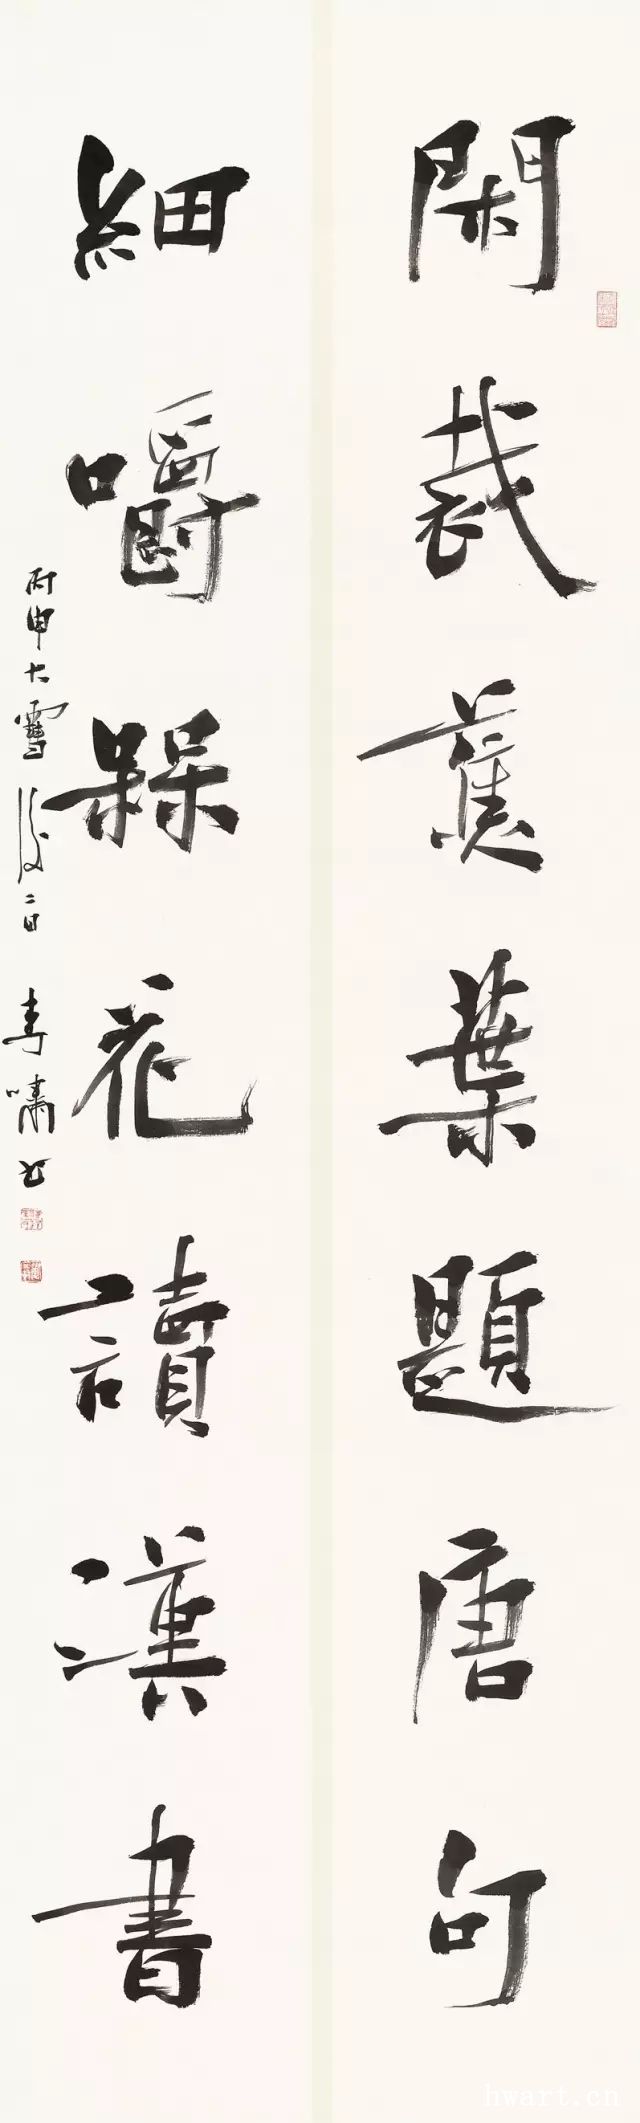 閑裁蕉葉題唐句
細嚼槑花讀漢書
丙申大雪後二日 李嘯書
hwart.cn